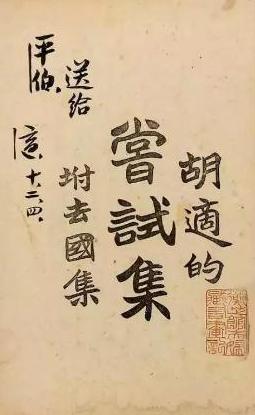 胡適的
嘗試集
坿去國集
送給
平伯,
適. 十二. 四.